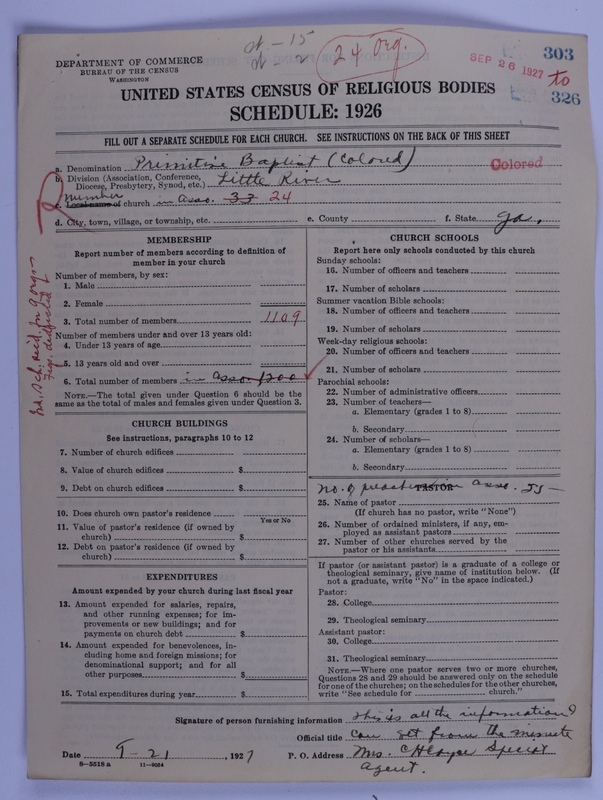 DEPARTMENT OF COMMERCE
BUREAU OF THE CENSUS
WASHINGTON
24 org.
SEP 26 1927
303
to
326
UNITED STATES CENSUS OF RELIGIOUS BODIES
SCHEDULE: 1926
FILL OUT A SEPARATE SCHEDULE FOR EACH CHURCH. SEE INSTRUCTIONS ON THE BACK OF THIS SHEET
a. Denomination Primitive Baptist (Colored)
Colored
b. Division (Association, Conference, Diocese, Presbytery, Synod, etc.) Little River
number
c. Local name of church in Asso. 33 24
d. City, town, village, or township, etc. e. County f. State Ga.,
MEMBERSHIP
Report number of members according to definition of
member in your church
Number of members, by sex:
1. Male
2. Female
3. Total number of members 1109
Number of members under and over 13 years old:
4. Under 13 years of age
5. 13 years old and over
6. Total number of members in asso. 1200
NOTE.—The total given under Question 6 should be
same as the total of males and females given under Question 3.
CHURCH BUILDINGS
See instructions, paragraphs 10 to 12
7. Number of church edifices
8. Value of church edifices $
9. Debt on church edifices $
10. Does church own pastor's residence
Yes or No
11. Value of pastor's residence (if owned by
church) $
12. Debt on pastor's residence (if owned by
church) $
EXPENDITURES
Amount expended by your church during last fiscal year
13. Amount expended for salaries, repairs,
and other running expenses; for im-
provements or new buildings; and for
payments on church debt $
14. Amount expended for benevolences, in-
cluding home and foreign missions; for
denominational support; and for all
other purposes $
15. Total expenditures during year $
CHURCH SCHOOLS
Report here only schools conducted by this church
Sunday schools:
16. Number of officers and teachers
17. Number of scholars
Summer vacation Bible schools:
18. Number of officers and teachers
19. Number of scholars
Week-day religious schools:
20. Number of officers and teachers
21. Number of scholars
Parochial schools:
22. Number of administrative officers
23. Number of teachers—
a. Elementary (grades 1 to 8)
b. Secondary
24. Number of scholars—
a. Elementary (grades 1 to 8)
b. Secondary
no. of in asso.
PASTOR
25. Name of pastor
(If church has no pastor, write "None")
26. Number of ordained ministers, if any, em-
ployed as assistant pastors
27. Number of other churches served by the
pastor or his assistants
If pastor (or assistant pastor) is a graduate of a college or
theological seminary, give name of institution below. (If
not a graduate, write "No" in the space indicated.)
Pastor:
28. College
29. Theological seminary
Assistant pastor:
30. College
31. Theological seminary
NOTE.—Where one pastor serves two or more churches,
Questions 28 and 29 should be answered only on the schedule
for one of the churches; on the schedules for the other churches,
write "See schedule for church."
Signature of person furnishing information this is all the information I
Official title can get from the minute
Date 9-21, 1927 P. O. Address Mrs. Special
8-5518 a 11-9024
agent.